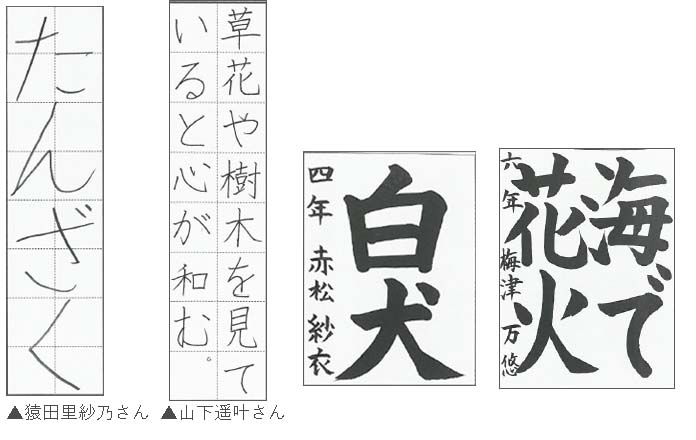 たんざく
▲猿田里紗乃さん
草花や樹木を見て
いると心が和む。
▲山下遥叶さん
白犬
四年 赤松 紗衣
海で
花火
六年 梅津 万悠